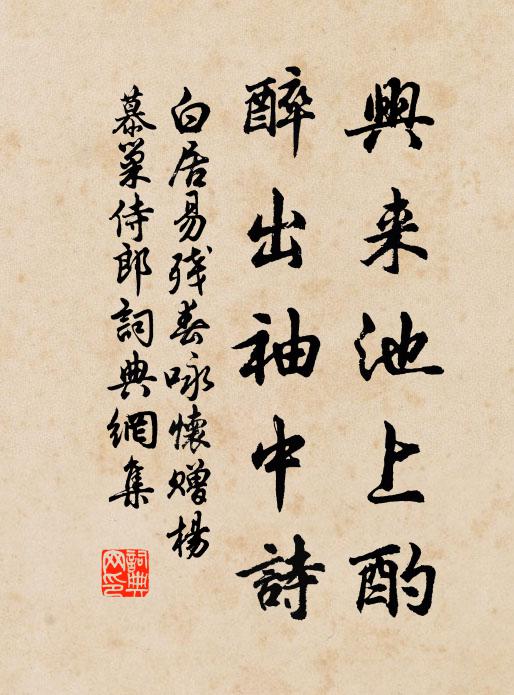 興来池上酌
醉出袖中詩
白居易残春咏懷贈楊
慕巢侍郎詞典網集
詞典网印